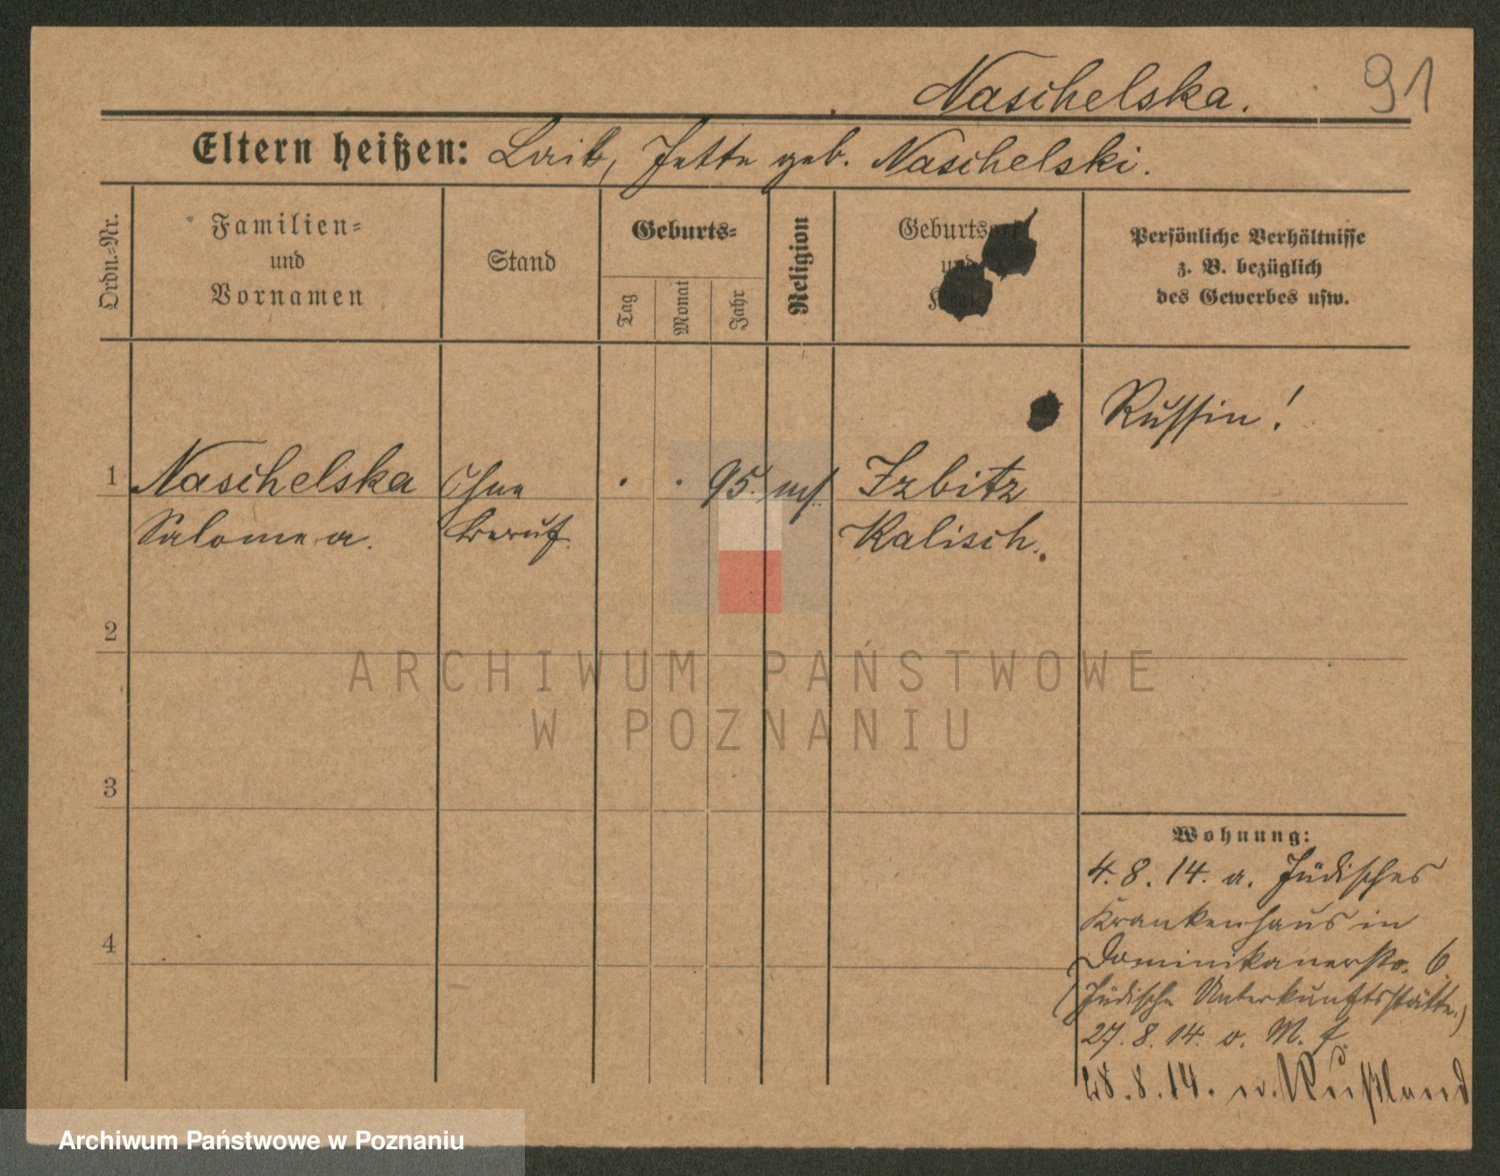 Naschelska. 91
Eltern heißen: Laib, Jette geb. Naschelski.
Ordn.-Nr.
Familien-
und
Vornamen
Stand
Geburts-
Tag
Monat
Jahr
Religion
Geburtsort
und
Persönliche Verhältnisse
z. B. bezüglich
des Gewerbes usw.
Russin!
1 Naschelska Ohne . . 95. mos. Izbitz
Salomea. Beruf. Kalisch.
2
3
4
Wohnung:
4.8.14. a. Jüdisches
Krankenhaus in
Dominikanerstr. 6
(Jüdische Unterkunftsstätte.)
27.8.14. v. M. f.
28.8.14. n. Rußland
ARCHIWUM PAŃSTWOWE
W POZNANIU
Archiwum Państwowe w Poznaniu